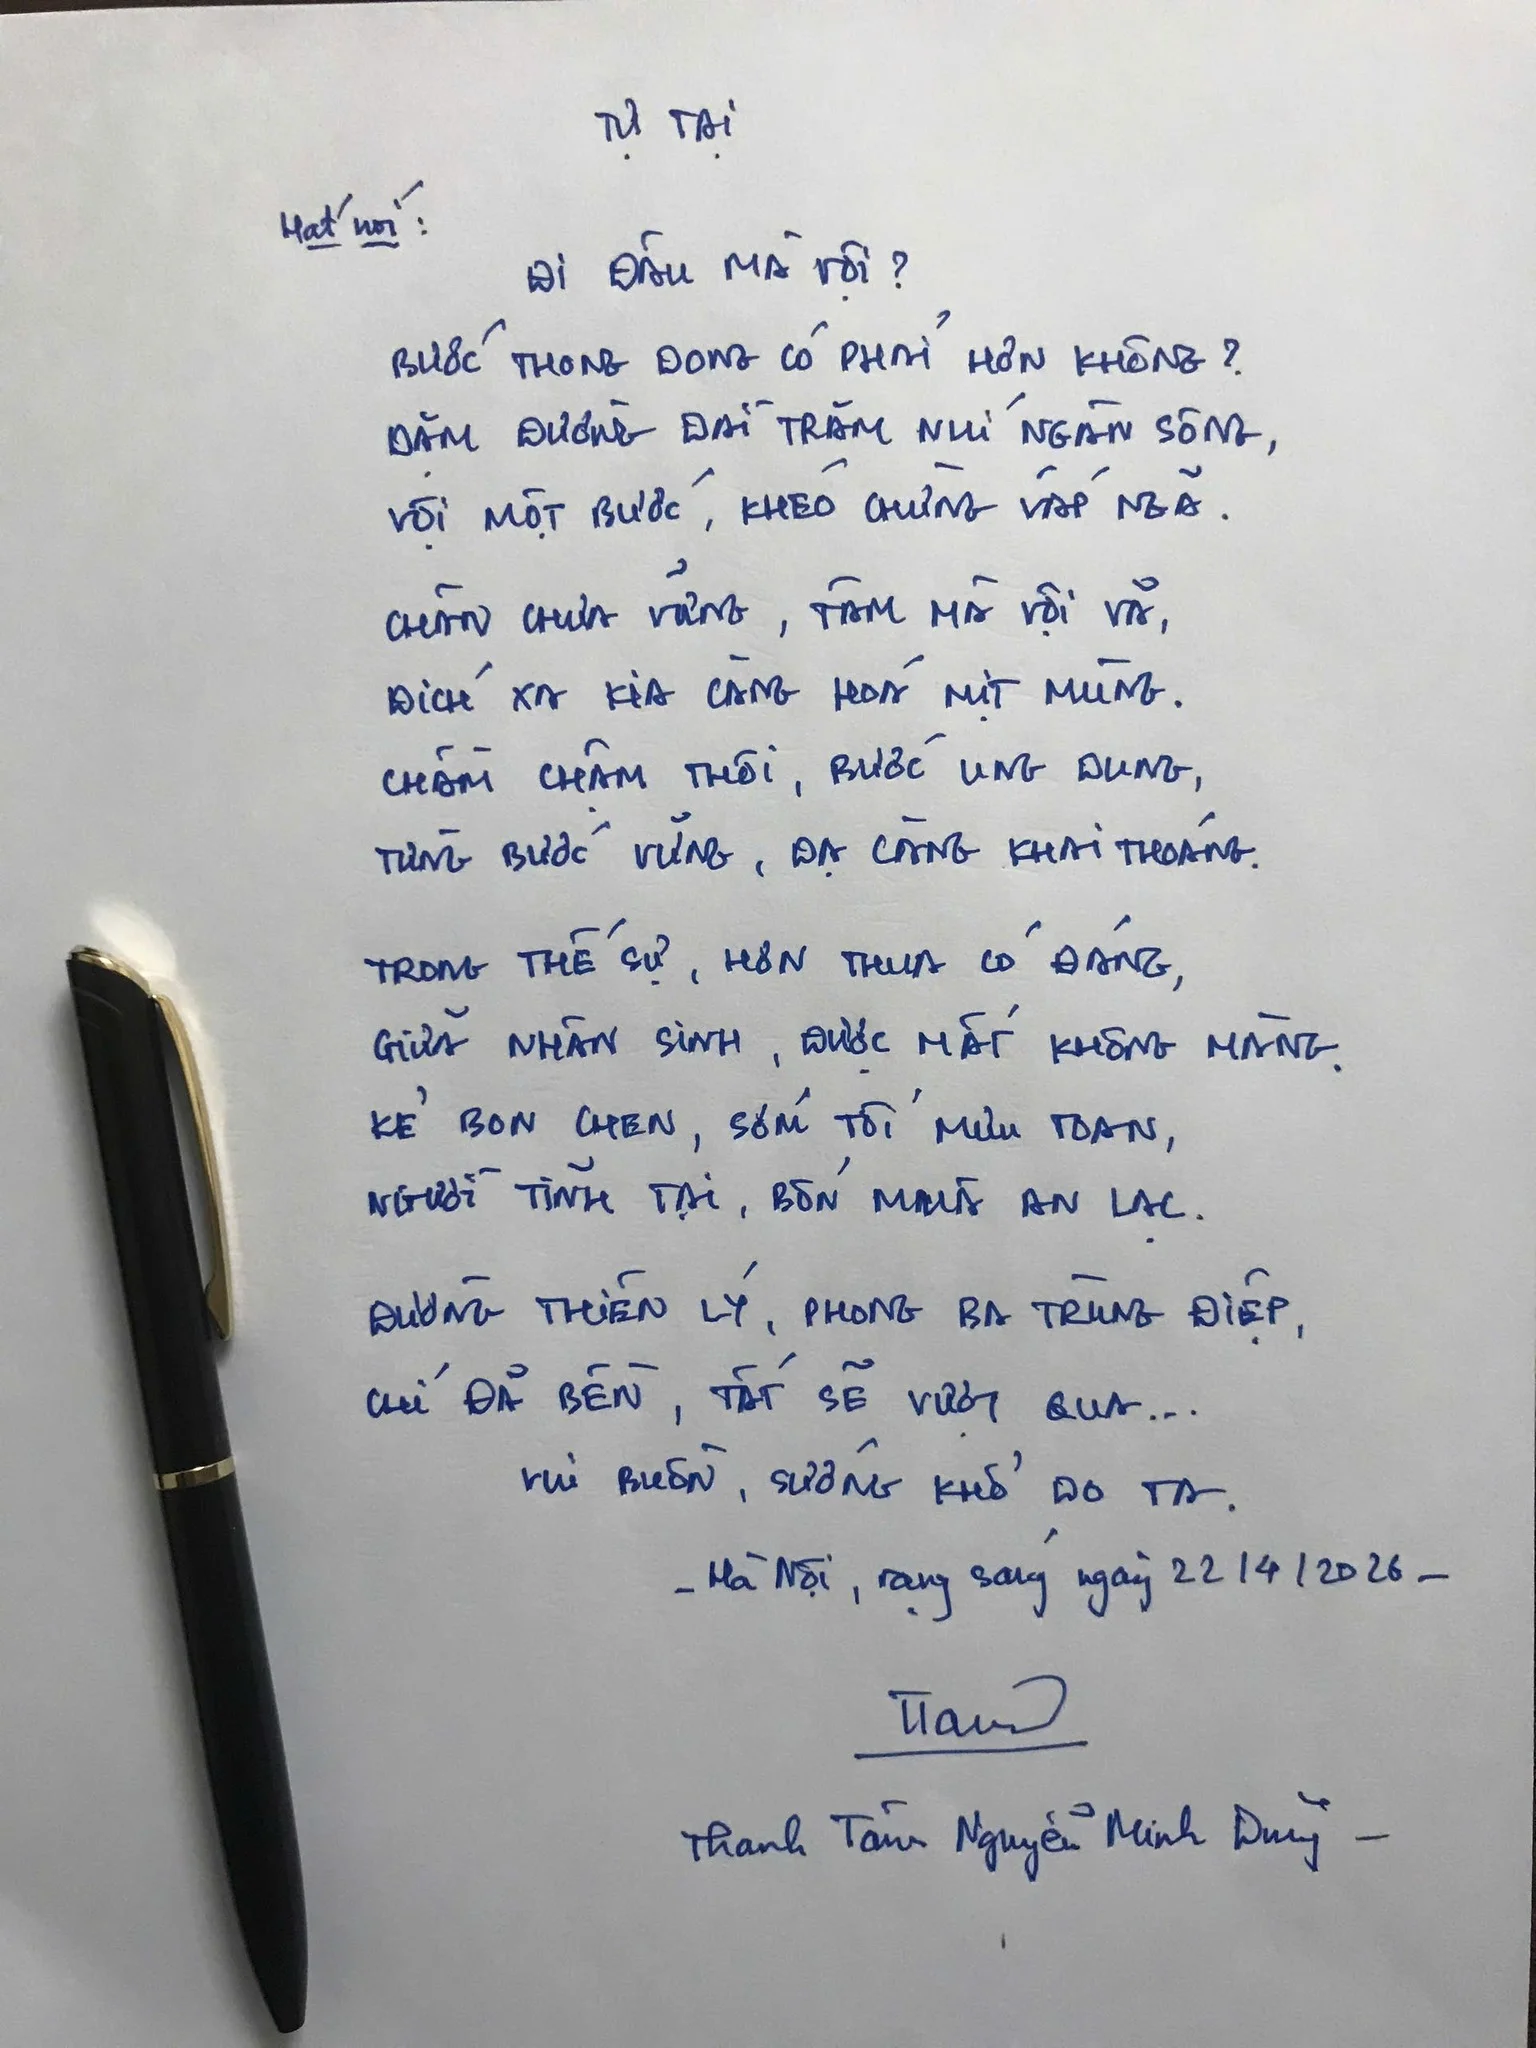 TỰ TẠI
Hát nói:
ĐI ĐÂU MÀ VỘI?
BƯỚC THONG DONG CÓ PHẢI HƠN KHÔNG?
DẶM ĐƯỜNG DÀI TRĂM NÚI NGÀN SÔNG,
VỘI MỘT BƯỚC, KHÉO CHỪNG VẤP NGÃ.
CHÂN CHƯA VỮNG, TÂM MÀ VỘI VÃ,
ĐÍCH XA KIA CÀNG HOÁ MỊT MÙNG.
CHẦM CHẬM THÔI, BƯỚC UNG DUNG,
TỪNG BƯỚC VỮNG, DẠ CÀNG KHAI THOÁNG.
TRONG THẾ SỰ, HƠN THUA CÓ ĐÁNG,
GIỮA NHÂN SINH, ĐƯỢC MẤT KHÔNG MÀNG.
KẺ BON CHEN, SỚM TỐI MƯU TOAN,
NGƯỜI TĨNH TẠI, BỐN MÙA AN LẠC.
ĐƯỜNG THIÊN LÝ, PHONG BA TRÙNG ĐIỆP,
CHÍ ĐÃ BỀN, TẤT SẼ VƯỢT QUA...
VUI BUỒN, SƯỚNG KHỔ DO TA.
- Hà Nội, rạng sáng ngày 22/4/2026 -
Thanh Tâm Nguyễn Minh Duy -